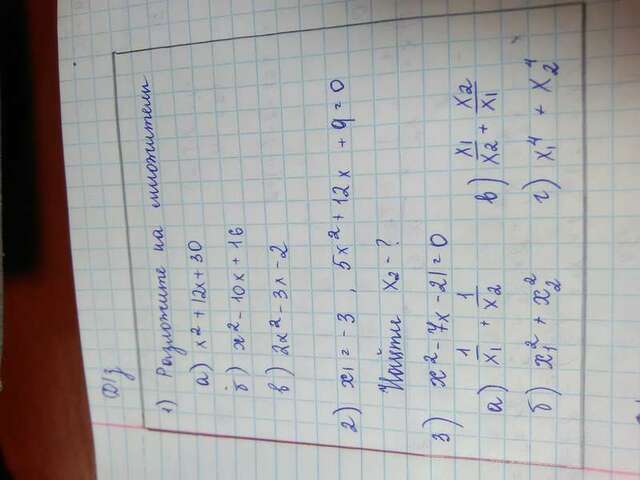 Д/з
1) Разложите на множители
а) x² + 12x + 30
б) x² - 10x + 16
в) 2x² - 3x - 2
2) x₁ = -3, 5x² + 12x + q = 0
Найти x₂ - ?
3) x² - 7x - 21 = 0
а) 1/x₁ + 1/x₂ в) x₁/x₂ + x₂/x₁
б) x₁² + x₂² г) x₁⁴ + x₂⁴